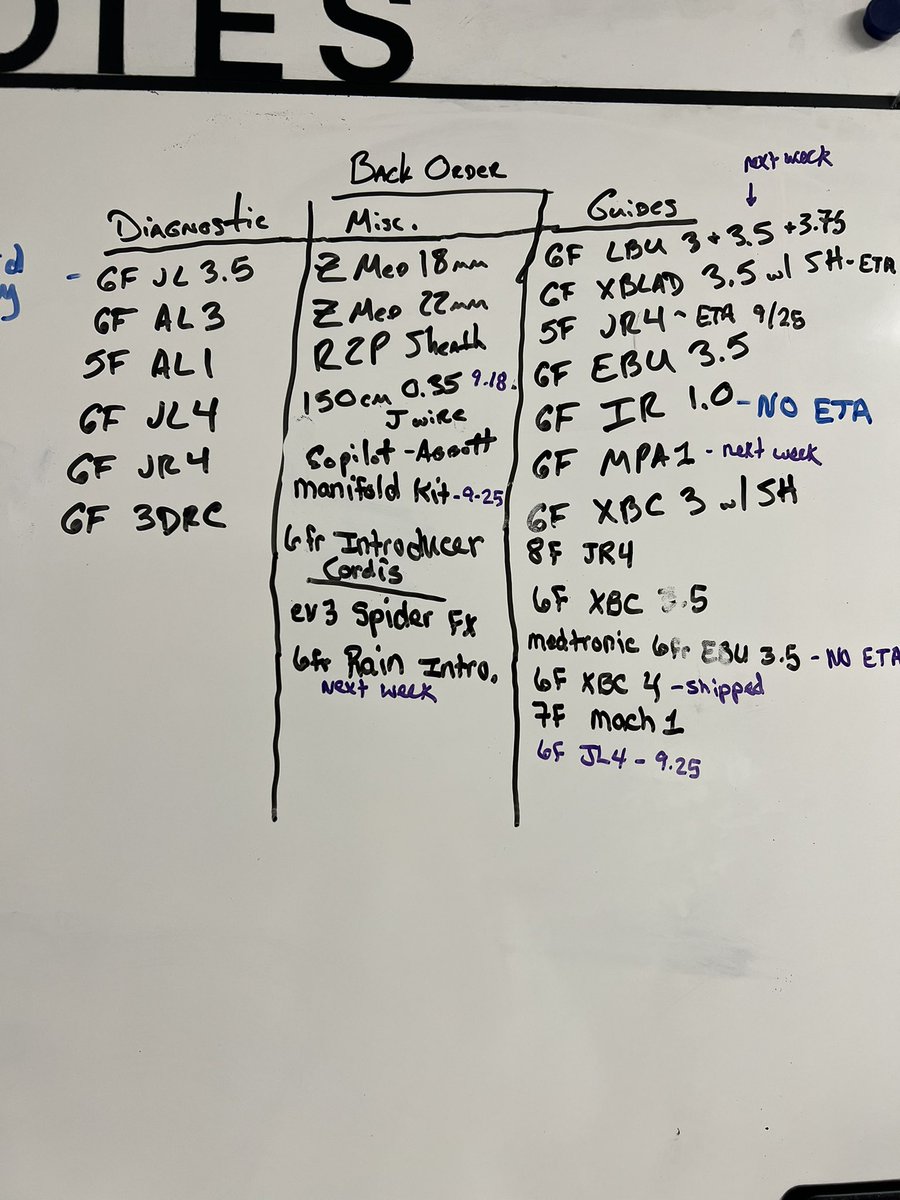 OTES
Back Order
Diagnostic
- 6F JL 3.5
6F AL3
5F AL1
6F JL4
6F JR4
6F 3DRC
Misc.
Z Med 18mm
Z Med 22mm
R2P Sheath
150cm 0.35 9.18.
J wire
Copilot - Abbott
manifold Kit - 9-25
6fr Introducer
Cordis
ev3 Spider FX
6fr Rain Intro.
Next week
next week
↓
Guides
6F LBU 3 + 3.5 + 3.75
6F XBLAD 3.5 w/ SH - ETA
5F JR4 ~ ETA 9/25
6F EBU 3.5
6F IR 1.0 - NO ETA
6F MPA1 - next week
6F XBC 3 w/ SH
8F JR4
6F XBC 3.5
medtronic 6fr EBU 3.5 - NO ETA
6F XBC 4 - shipped
7F Mach 1
6F JL4 - 9.25